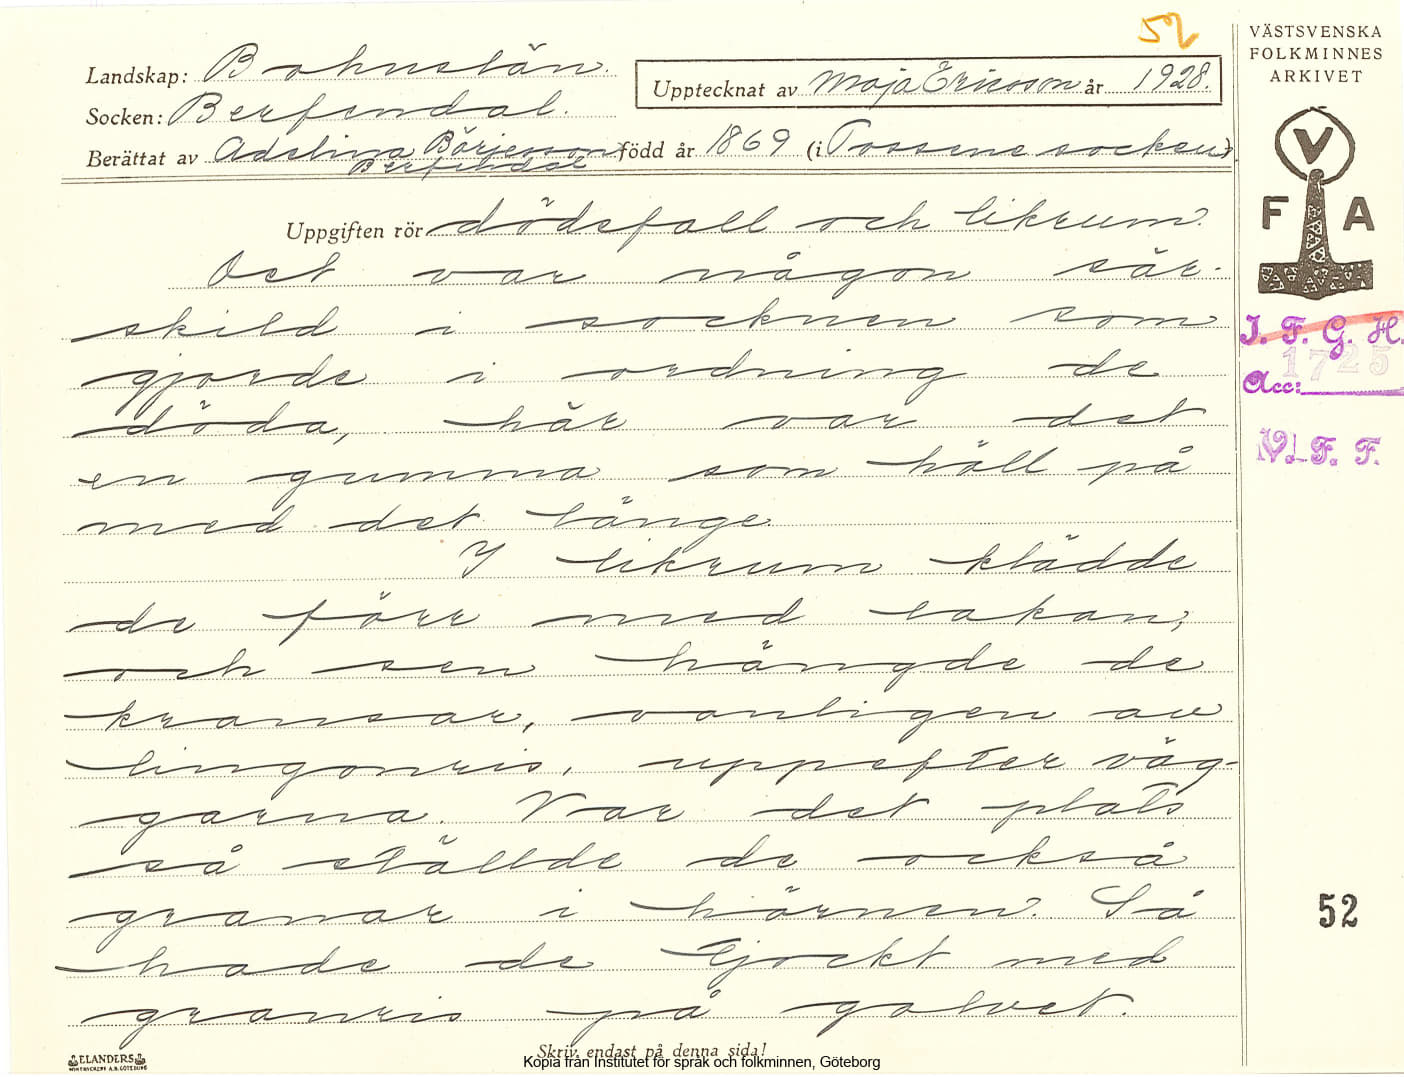 52
VÄSTSVENSKA
FOLKMINNES
ARKIVET
Landskap: Bohuslän.
Upptecknat av Maja Ericsson år 1928.
Socken: Berfendal.
Berättat av Adelina Börjesson född år 1869 (i Tossene socken).
Berfendal
V
F A
Uppgiften rör dödsfall och likrum.
Det var någon sär-
skild i socknen som
gjorde i ordning de
döda, här var det
en gumma som höll på
med det länge.
I likrum klädde
de förr med lakan,
och sen hängde de
kransar, vanligen av
lingonris, uppefter väg-
garna. Var det plats
så ställde de också
granar i hörnen. Så
hade de tjockt med
granris på golvet.
I. F. G. H.
1725
Acc:
V. F. F.
52
Skriv endast på denna sida!
ELANDERS
Kopia från Institutet för språk och folkminnen, Göteborg